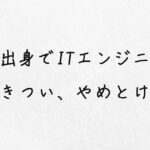 出身でITエンジニ
きつい、やめとけ